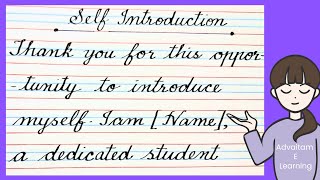 Self Introduction
Thank you for this oppor-
-tunity to introduce
myself. I am [Name],
a dedicated student
Advaitam
E
Learning